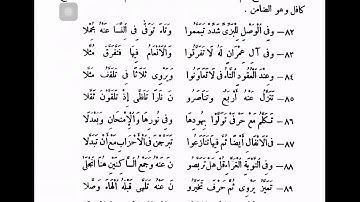 كافل وهو الضامن .
٨٢ – وَفِى الْوَصْلِ لِلْبَزِّىِّ شَدِّدْ تَيَمَّمُوا وَتَاءَ تَوَفَّى فِى النِّسَا عَنْهُ مُجْمِلَا
٨٣ – وَفِى آلِ عِمْرَانٍ لَهُ لَا تَفَرَّقُوا وَالْأَنْعَامُ فِيهَا فَتَفَرَّقَ مُثِّلَا
٨٤ – وَعِنْدَ الْعُقُودِ التَّاءُ فِى لَا تَعَاوَنُوا وَيَرْوِى ثَلَاثًا فِى تَلَقَّفُ مُثَّلَا
٨٥ – تَنَزَّلُ عَنْهُ أَرْبَعٌ وَتَنَاصَرُو نَ نَارًا تَلَظَّى إِذْ تَلَقَّوْنَ ثُقِّلَا
٨٦ – تَكَلَّمُ مَعْ حَرْفَىْ تَوَلَّوْا بِهُودِهَا وَفِى نُورِهَا وَالْاِمْتِحَانِ وَبَعْدَلَا
٨٧ – فِى الْاَنْفَالِ أَيْضًا ثُمَّ فِيهَا تَنَازَعُوا تَبَرَّجْنَ فِى الْأَحْزَابِ مَعْ أَنْ تَبَدَّلَا
٨٨ – وَفِى التَّوْبَةِ الْغَرَّاءِ قُلْ هَلْ تَرَبَّصُو نَ عَنْهُ وَجَمْعُ السَّاكِنَيْنِ هُنَا انْجَلَى
٨٩ – تَمَيَّزُ يَرْوِى ثُمَّ حَرْفَ تَخَيَّرُو نَ عَنْهُ تَلَهَّى قَبْلَهُ الْهَاءَ وَصَّلَا